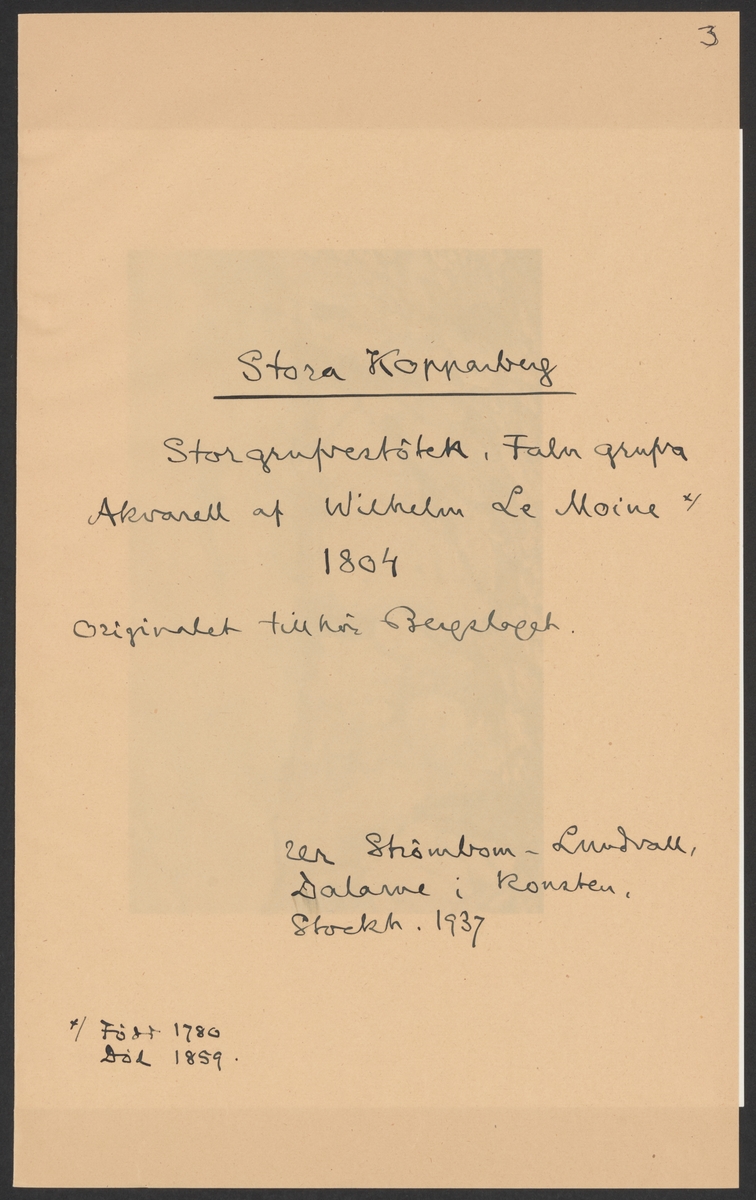 3
Stora Kopparberg
Storgrufvestöten, Falu grufva
Akvarell af Wilhelm Le Moine x/
1804
Originalet tillhör Bergslaget.
ur Strömbom - Lundvall,
Dalarne i Konsten,
Stockh. 1937
x/ Född 1780
Död 1859.